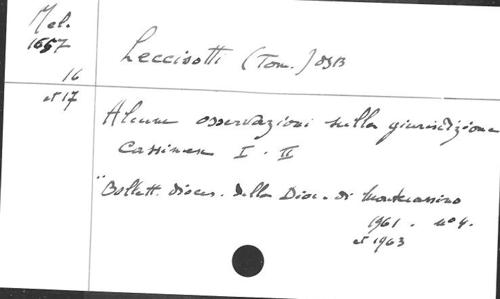 Mel.
1657
16
et 17
Leccisotti (Tom.) OSB
Alcune osservazioni sulla giurisdizione
Cassinese I. II
"Bollett. dioces. della Dioc. di Montecassino
1961. n° 4.
et 1963